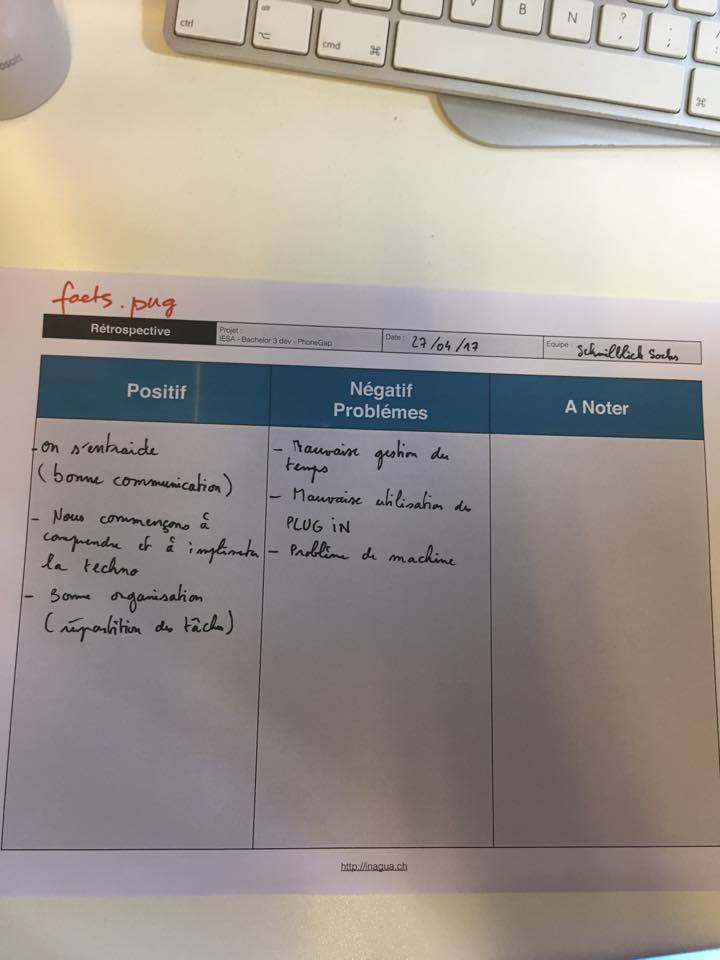 ctrl
alt
⌥
cmd ⌘
V
B
N
?
,
:
;
⌘
rosoft
facts.pug
Rétrospective
Projet :
IESA - Bachelor 3 dev - PhoneGap
Date : 27/04/17
Equipe : Schmilblick Socks
Positif
Négatif
Problémes
A Noter
- on s'entraide
(bonne communication)
- Nous commençons à
comprendre et à implimenter
la techno
- Bonne organisation
(répartition des tâches)
- Mauvaise gestion du
temps
- Mauvaise utilisation de
PLUG iN
- Problème de machine
http://inagua.ch